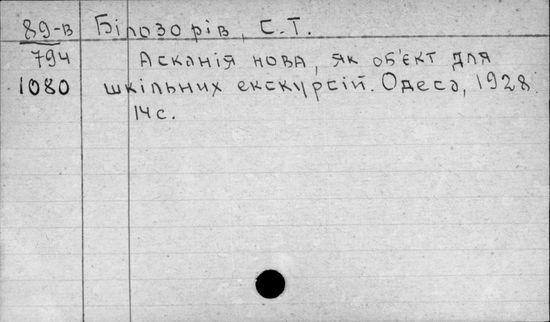 89-в Білозорів, С.Т.
794 Асканія нова, як об'єкт для
1080 шкільних екскурсій. Одеса, 1928.
14 с.